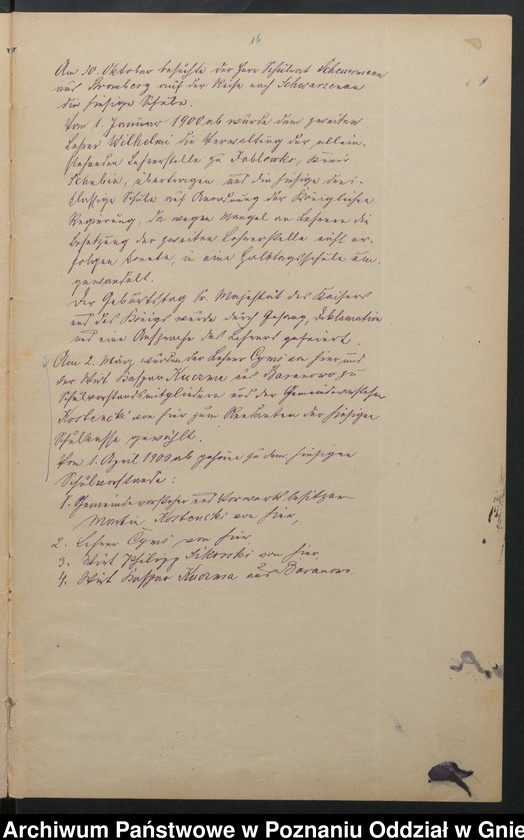 16
Am 30. Oktober besuchte der Herr Schulrat Scheuermann
aus Bromberg auf der Reise nach Schwarzenau
die hiesige Schule.
Vom 1. Januar 1900 ab wurde dem zweiten
Lehrer Wilhelmi die Verwaltung der allein-
stehenden Lehrerstelle zu Jablowko, Kreis
Schubin, übertragen und die hiesige drei-
klassige Schule auf Anordnung der Königlichen
Regierung, da wegen Mangel an Lehrern die
Besetzung der zweiten Lehrerstelle nicht er-
folgen konnte, in eine Halbtagsschule um-
gewandelt.
Der Geburtstag Sr. Majestät des Kaisers
und des Königs wurde durch Gesang, Deklamation
und eine Ansprache des Lehrers gefeiert.
Am 2. März wurden der Lehrer Cyms von hier und
der Wirt Kaspar Kuczma aus Baranowo zu
Schulvorstandsmitgliedern und der Gemeindevorsteher
Kostencki von hier zum Rendanten der hiesigen
Schulkasse gewählt.
Vom 1. April 1900 ab gehören zu dem hiesigen
Schulvorstande:
1. Gemeindevorsteher und Vorwerksbesitzer
Martin Kostencki von hier,
2. Lehrer Cyms von hier
3. Wirt Philipp Sikorski von hier
4. Wirt Kaspar Kuczma aus Baranowo
Archiwum Państwowe w Poznaniu Oddział w Gnie